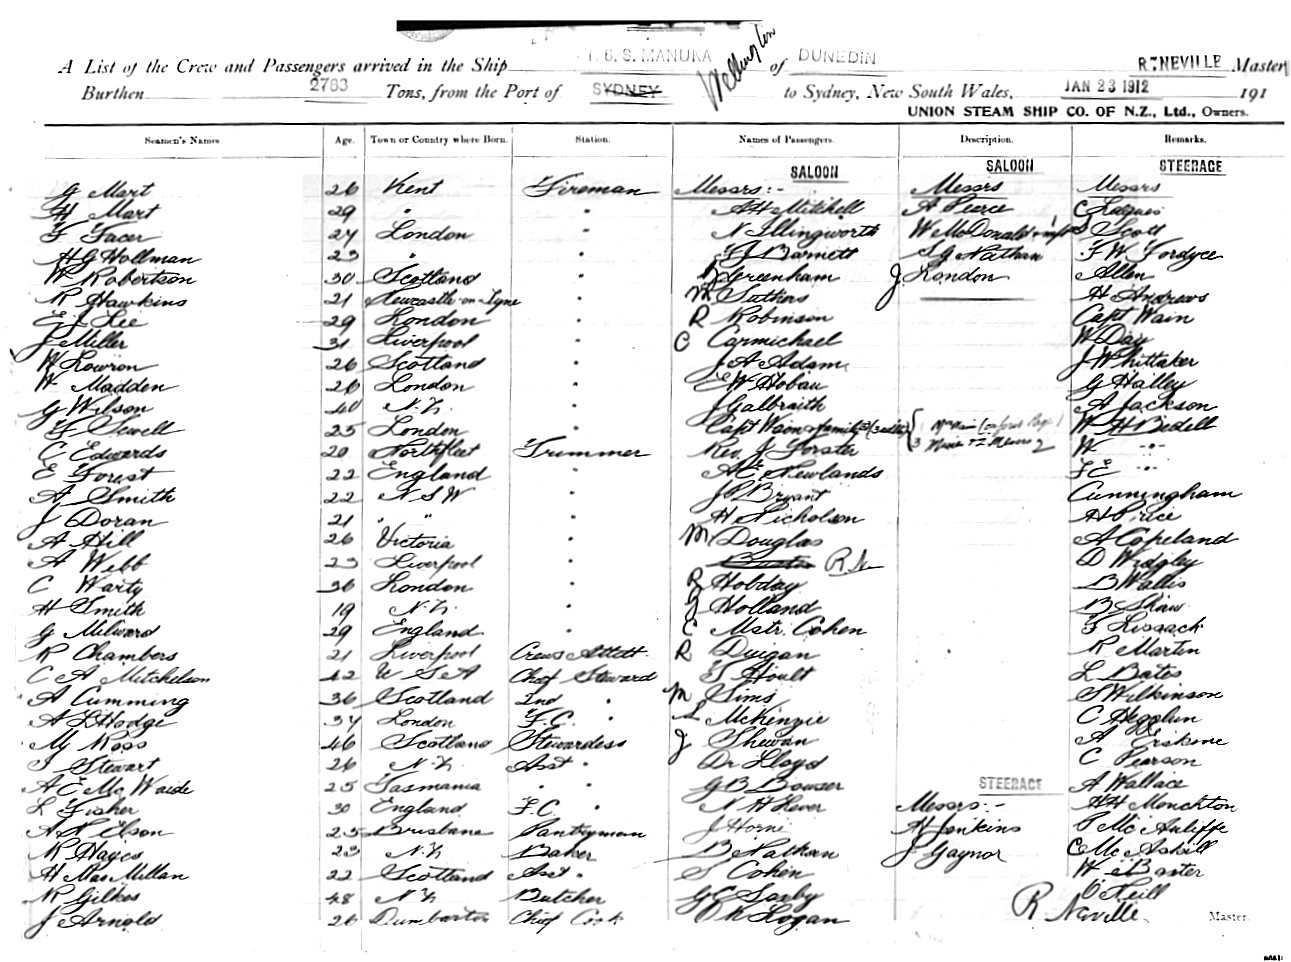 A List of the Crew and Passengers arrived in the Ship S. S. MANUKA of DUNEDIN R. NEVILLE Master
Burthen 2783 Tons, from the Port of SYDNEY Wellington to Sydney, New South Wales, JAN 23 1912 191
UNION STEAM SHIP CO. OF N.Z., Ltd., Owners.
Seamen's Names. Age. Town or Country where Born. Station. Names of Passengers. Description. Remarks.
SALOON SALOON STEERAGE
G Mart 26 Kent Fireman Messrs :- Messrs Messrs
H Mart 29 " " A H Mitchell A Pearce C
F Facer 27 London " N Illingworth W McDonald S Scott
H G Hollman 23 " " Barnett S G Nathan F W Fordyce
W Robertson 30 Scotland " Greenham J London Allen
R Hawkins 21 Newcastle-on-Tyne " M Suthers H Andrews
E L Lee 29 London " R Robinson Capt Wain
J Miller 31 Liverpool " C Carmichael W Day
W Lowron 26 Scotland " J A Adam J Whittaker
W Madden 26 London " E W Hobau G Halley
G Wilson 40 N.Z. " J Galbraith A Jackson
F Sewell 25 London " Capt Wain & family W H Bedell
C Edwards 20 Northfleet Trimmer Rev. J Forster W "
E Forest 22 England " A E Newlands F E "
A Smith 22 N S W " J P Bryant Cunningham
J Doran 21 " " " H Nicholson H Price
A Hill 26 Victoria " M Douglas A Copeland
A Webb 23 Liverpool " R.N. D Widgley
C Warty 36 London " R Hobday B Wallis
H Smith 19 N.Z. " J Holland B Shaw
G Milward 29 England " C Mstr. Cohen F Lissack
R Chambers 21 Liverpool Crews Attdt. R Duigan R Martin
C A Mitchelson 42 U S A Chief Steward T Hoult L Bates
A Cumming 36 Scotland 2nd " M Sims S Wilkinson
A L Hodge 37 London F.C. " McKenzie C
M Ross 46 Scotland Stewardess J Shewan A Erskine
J Stewart 26 N.Z. Asst " Dr Lloyd C Pearson
A E McWaide 25 Tasmania " " G B Bowser STEERAGE A Wallace
L Fisher 30 England F.C. " N H Lever Messrs :- H H Monckton
A Nelson 25 Brisbane Pantryman J Horne H Jenkins P McAuliffe
R Hayes 23 N.Z. Baker B Nathan J Gaynor C McAskill
H MacMillan 22 Scotland Asst " S Cohen W Baxter
R Gilkes 48 N Z Butcher G E Saxby O'Neill
J Arnold 26 Dumbarton Chief Cook Logan R Neville Master.